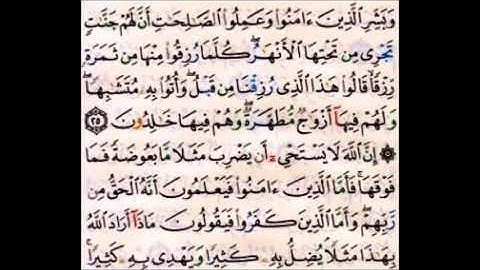 وَبَشِّرِ الَّذِينَ ءَامَنُوا وَعَمِلُوا الصَّٰلِحَٰتِ أَنَّ لَهُمْ جَنَّٰتٍ
تَجْرِى مِن تَحْتِهَا الْأَنْهَٰرُ ۖ كُلَّمَا رُزِقُوا مِنْهَا مِن ثَمَرَةٍ
رِّزْقًا ۙ قَالُوا هَٰذَا الَّذِى رُزِقْنَا مِن قَبْلُ ۖ وَأُتُوا بِهِۦ مُتَشَٰبِهًا ۖ
وَلَهُمْ فِيهَآ أَزْوَٰجٌ مُّطَهَّرَةٌ ۖ وَهُمْ فِيهَا خَٰلِدُونَ ٢٥
۞ إِنَّ اللَّهَ لَا يَسْتَحْىِۦٓ أَن يَضْرِبَ مَثَلًا مَّا بَعُوضَةً فَمَا
فَوْقَهَا ۚ فَأَمَّا الَّذِينَ ءَامَنُوا فَيَعْلَمُونَ أَنَّهُ الْحَقُّ مِن
رَّبِّهِمْ ۖ وَأَمَّا الَّذِينَ كَفَرُوا فَيَقُولُونَ مَاذَآ أَرَادَ اللَّهُ
بِهَٰذَا مَثَلًا ۘ يُضِلُّ بِهِۦ كَثِيرًا وَيَهْدِى بِهِۦ كَثِيرًا ۚ